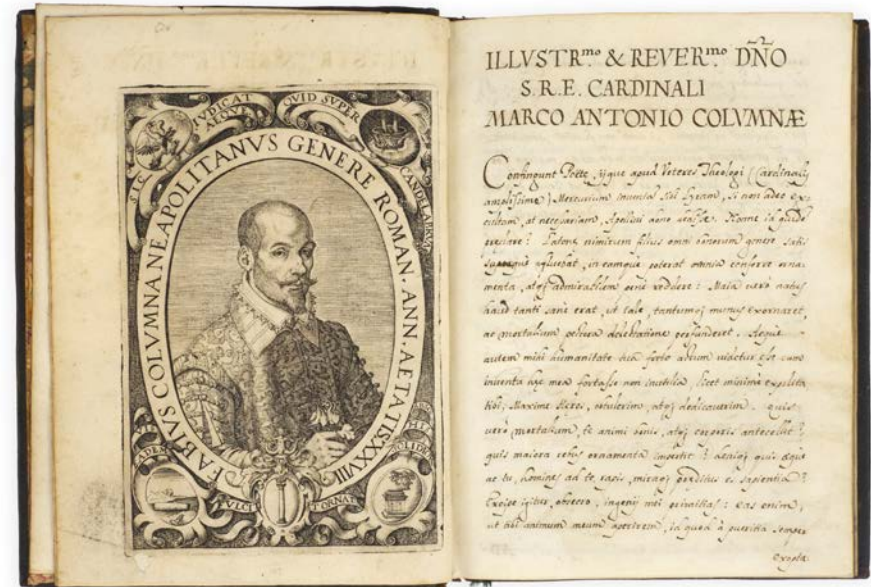 SIC IVDICAT AEQVE
QVID SVPER
CANDELABRVM
FABIVS COLVMNA NEAPOLITANVS GENERE ROMAN. ANN. AETATIS. XXXVIII
VLCI
TORNAT
ILLVSTR.mo & REVER.mo DÑO
S.R.E. CARDINALI
MARCO ANTONIO COLVMNÆ
Confingunt Poetæ, ijque apud Veteres Theologi (Cardinalis
amplissime) Mercurium inventa sibi Lyram, si non adeo ex
cultam, at necessariam, Apollini dono
præstare: Latonæ nimirum filius omni bonorum genere satis
affluebat, in eamque poterat omnia conferre orna
menta, atq; admirabilem reddere: Maia vero natus
haud tanti sane erat, ut tale, tantumq; munus exornaret,
ac mortalium pectora delectatione perfunderet. Aeque
autem mihi humanitate tua
inventa hæc mea fortasse non inutilia, licet minime expolita
tibi, Maxime Heros, obtulerim, atq; dedicaverim. quis
vero mortalium te animi bonis, atq; corporis antecellit?
quis maiora rebus ornamenta impertit?
ac tu, homines ad te rapis, miraq; præditus es sapientia?
Excipe igitur, obsecro, ingenij mei primitias: eas enim,
ut tibi animum meum aperirem, id quod à pueritia semper
exopta